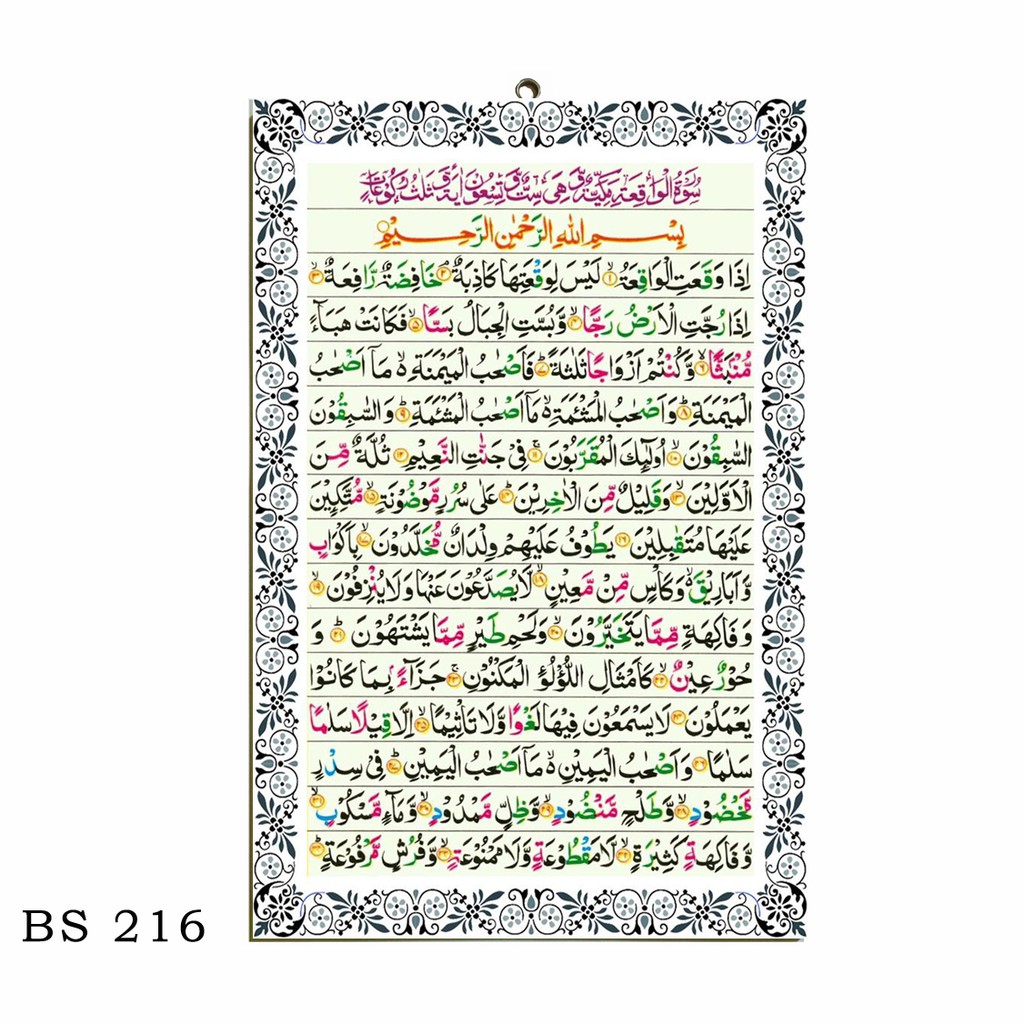 سُوْرَةُ الْوَاقِعَةِ مَكِّيَّةٌ وَّهِىَ سِتٌّ وَّتِسْعُوْنَ اٰيَةً وَّثَلٰثُ رُكُوْعَاتٍ
بِسْمِ اللهِ الرَّحْمٰنِ الرَّحِيْمِ
اِذَا وَقَعَتِ الْوَاقِعَةُ ۙ۱ لَيْسَ لِوَقْعَتِهَا كَاذِبَةٌ ۘ۲ خَافِضَةٌ رَّافِعَةٌ ۙ۳
اِذَا رُجَّتِ الْاَرْضُ رَجًّا ۙ۴ وَّبُسَّتِ الْجِبَالُ بَسًّا ۙ۵ فَكَانَتْ هَبَآءً
مُّنْۢبَثًّا ۙ۶ وَّكُنْتُمْ اَزْوَاجًا ثَلٰثَةً ؕ۷ فَاَصْحٰبُ الْمَيْمَنَةِ ۙ۬ مَاۤ اَصْحٰبُ
الْمَيْمَنَةِ ؕ۸ وَاَصْحٰبُ الْمَشْـَٔمَةِ ۙ۬ مَاۤ اَصْحٰبُ الْمَشْـَٔمَةِ ؕ۹ وَالسّٰبِقُوْنَ
السّٰبِقُوْنَ ۙ۱۰ اُولٰٓئِكَ الْمُقَرَّبُوْنَ ۚ۱۱ فِىْ جَنّٰتِ النَّعِيْمِ ۱۲ ثُلَّةٌ مِّنَ
الْاَوَّلِيْنَ ۙ۱۳ وَقَلِيْلٌ مِّنَ الْاٰخِرِيْنَ ؕ۱۴ عَلٰى سُرُرٍ مَّوْضُوْنَةٍ ۙ۱۵ مُّتَّكِـِٕيْنَ
عَلَيْهَا مُتَقٰبِلِيْنَ ۱۶ يَطُوْفُ عَلَيْهِمْ وِلْدَانٌ مُّخَلَّدُوْنَ ۙ۱۷ بِاَكْوَابٍ
وَّاَبَارِيْقَ ۙ۬ وَكَاْسٍ مِّنْ مَّعِيْنٍ ۙ۱۸ لَّا يُصَدَّعُوْنَ عَنْهَا وَلَا يُنْزِفُوْنَ ۙ۱۹
وَفَاكِهَةٍ مِّمَّا يَتَخَيَّرُوْنَ ۙ۲۰ وَلَحْمِ طَيْرٍ مِّمَّا يَشْتَهُوْنَ ؕ۲۱ وَ
حُوْرٌ عِيْنٌ ۙ۲۲ كَاَمْثَالِ اللُّؤْلُؤِ الْمَكْنُوْنِ ۚ۲۳ جَزَآءًۢ بِمَا كَانُوْا
يَعْمَلُوْنَ ۲۴ لَا يَسْمَعُوْنَ فِيْهَا لَغْوًا وَّلَا تَاْثِيْمًا ۙ۲۵ اِلَّا قِيْلًا سَلٰمًا
سَلٰمًا ۲۶ وَاَصْحٰبُ الْيَمِيْنِ ۙ۬ مَاۤ اَصْحٰبُ الْيَمِيْنِ ؕ۲۷ فِىْ سِدْرٍ
مَّخْضُوْدٍ ۙ۲۸ وَّطَلْحٍ مَّنْضُوْدٍ ۙ۲۹ وَّظِلٍّ مَّمْدُوْدٍ ۙ۳۰ وَّمَآءٍ مَّسْكُوْبٍ ۙ۳۱
وَّفَاكِهَةٍ كَثِيْرَةٍ ۙ۳۲ لَّا مَقْطُوْعَةٍ وَّلَا مَمْنُوْعَةٍ ۙ۳۳ وَّفُرُشٍ مَّرْفُوْعَةٍ ؕ۳۴
BS 216